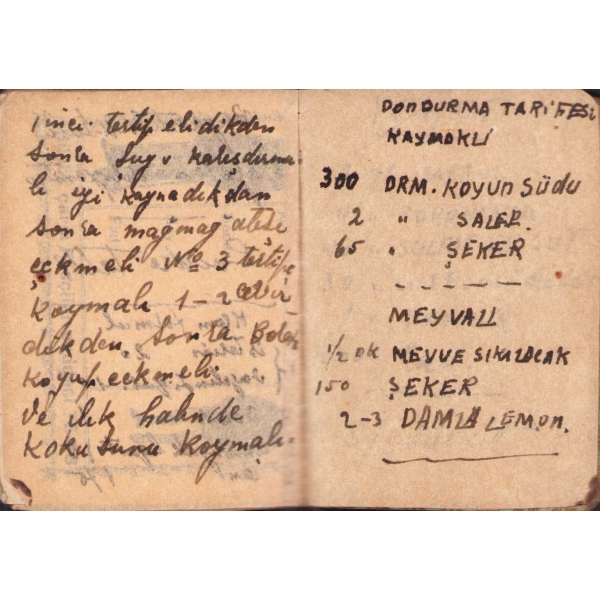 1 inci tertip elidikden
sonra suyu kalışdırma
lı iyi kaynadıkdan
sonra mağmağ ateşe
çekmeli No 3 tertipi
koymalı 1-2 cevir
dikden sonra
koyup cekmeli
Ve ilık halinde
Kokusunu koymalı
DONDURMA TARİFESİ
KAYMAKLI
300 DRM. KOYUN SÜDU
2 " SALEP.
65 " ŞEKER
- - - - -
MEYVALI
1/2 OK MEVVE SIKILACAK
150 ŞEKER
2-3 DAMLA LEMON.